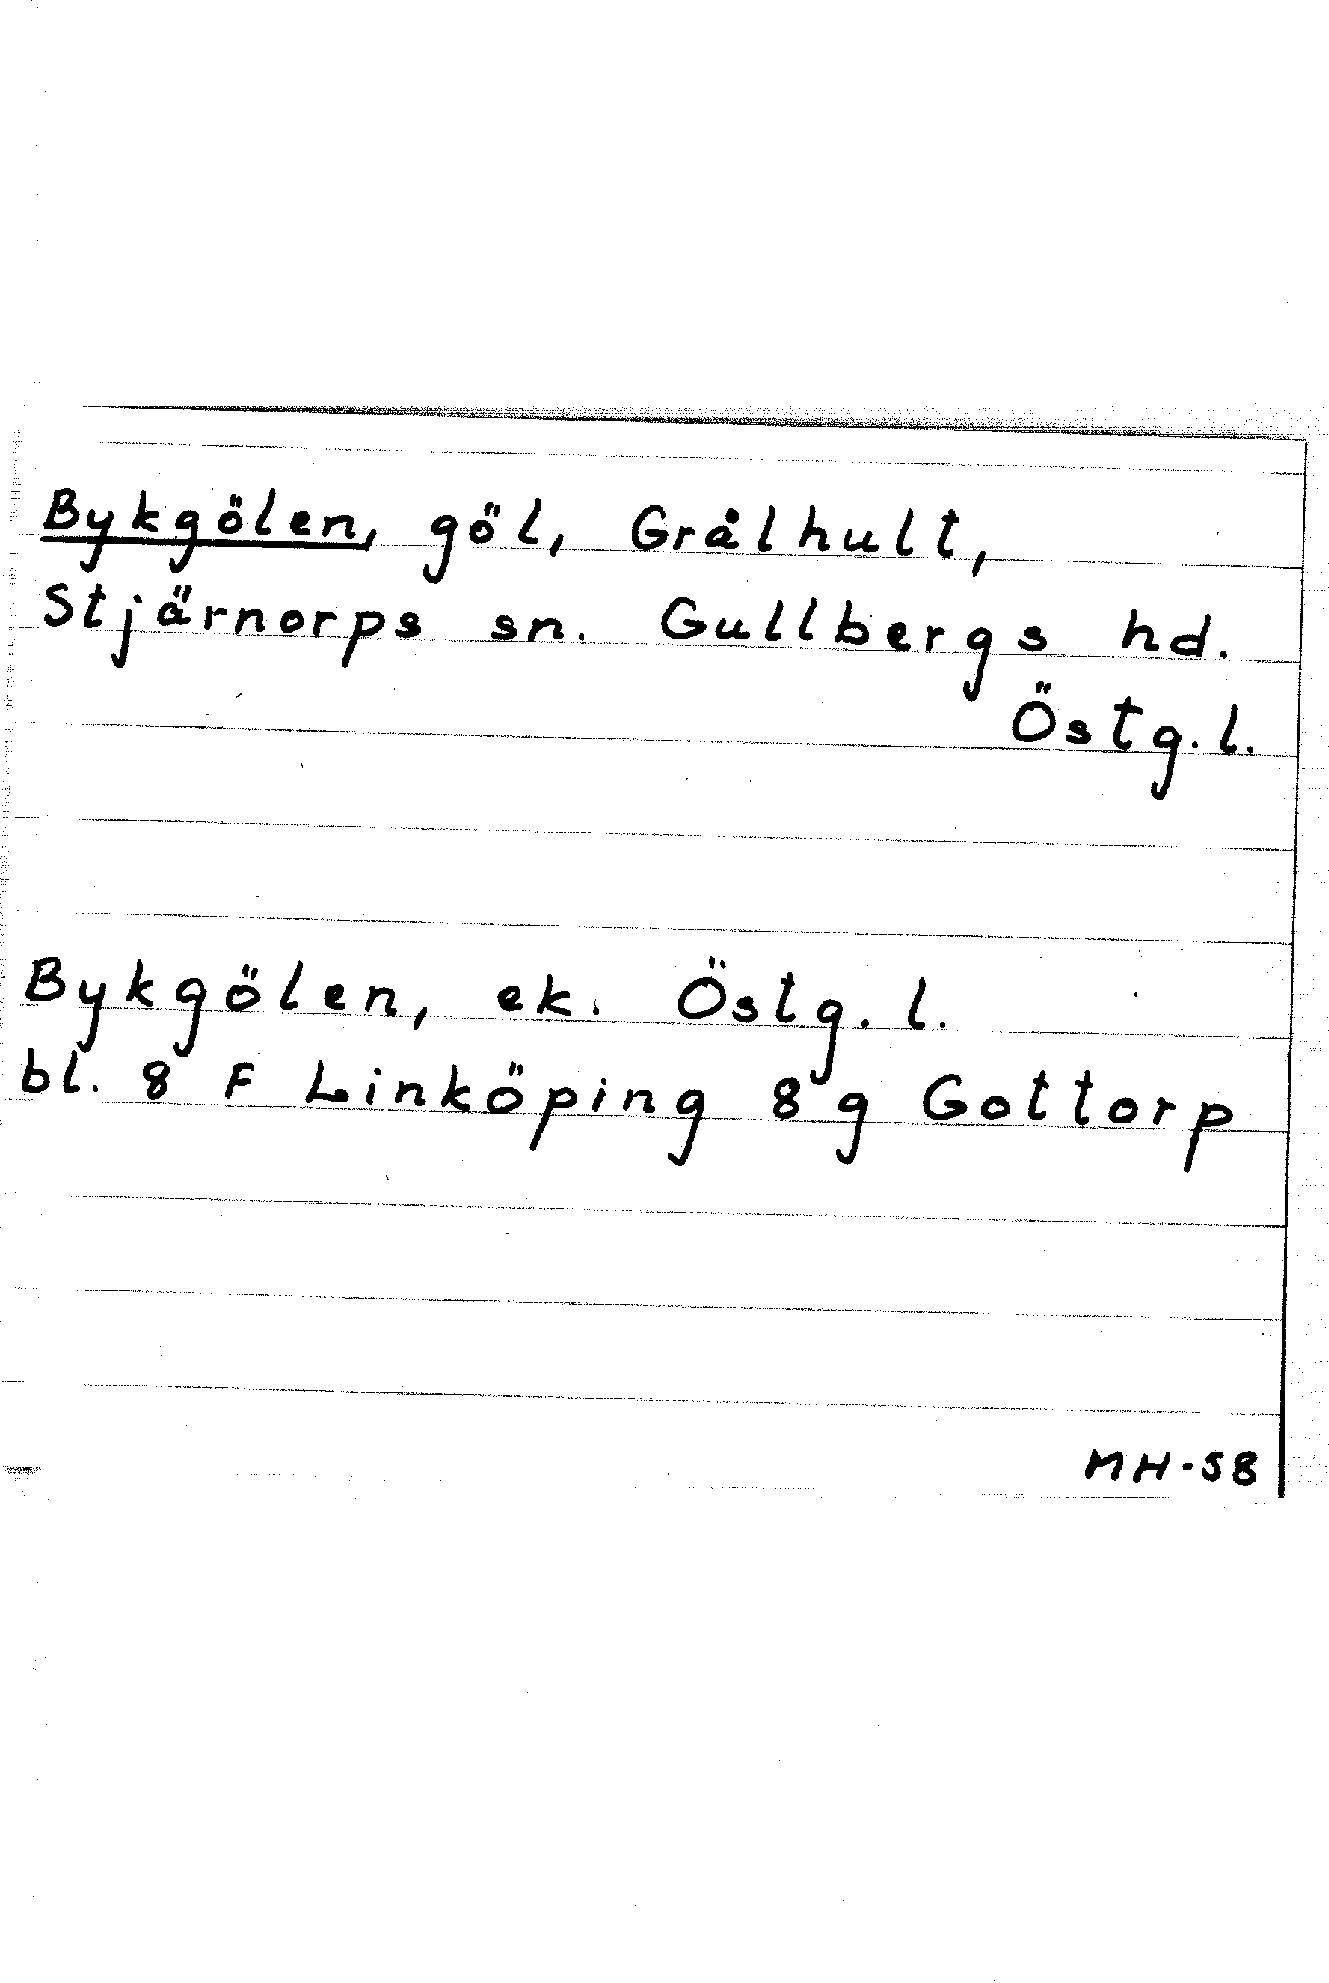 Bykgölen, göl, Grålhult,
Stjärnorps sn. Gullbergs hd.
Östg. l.
Bykgölen, ek. Östg. l.
bl. 8 F Linköping 8 g Gottorp
MH-58